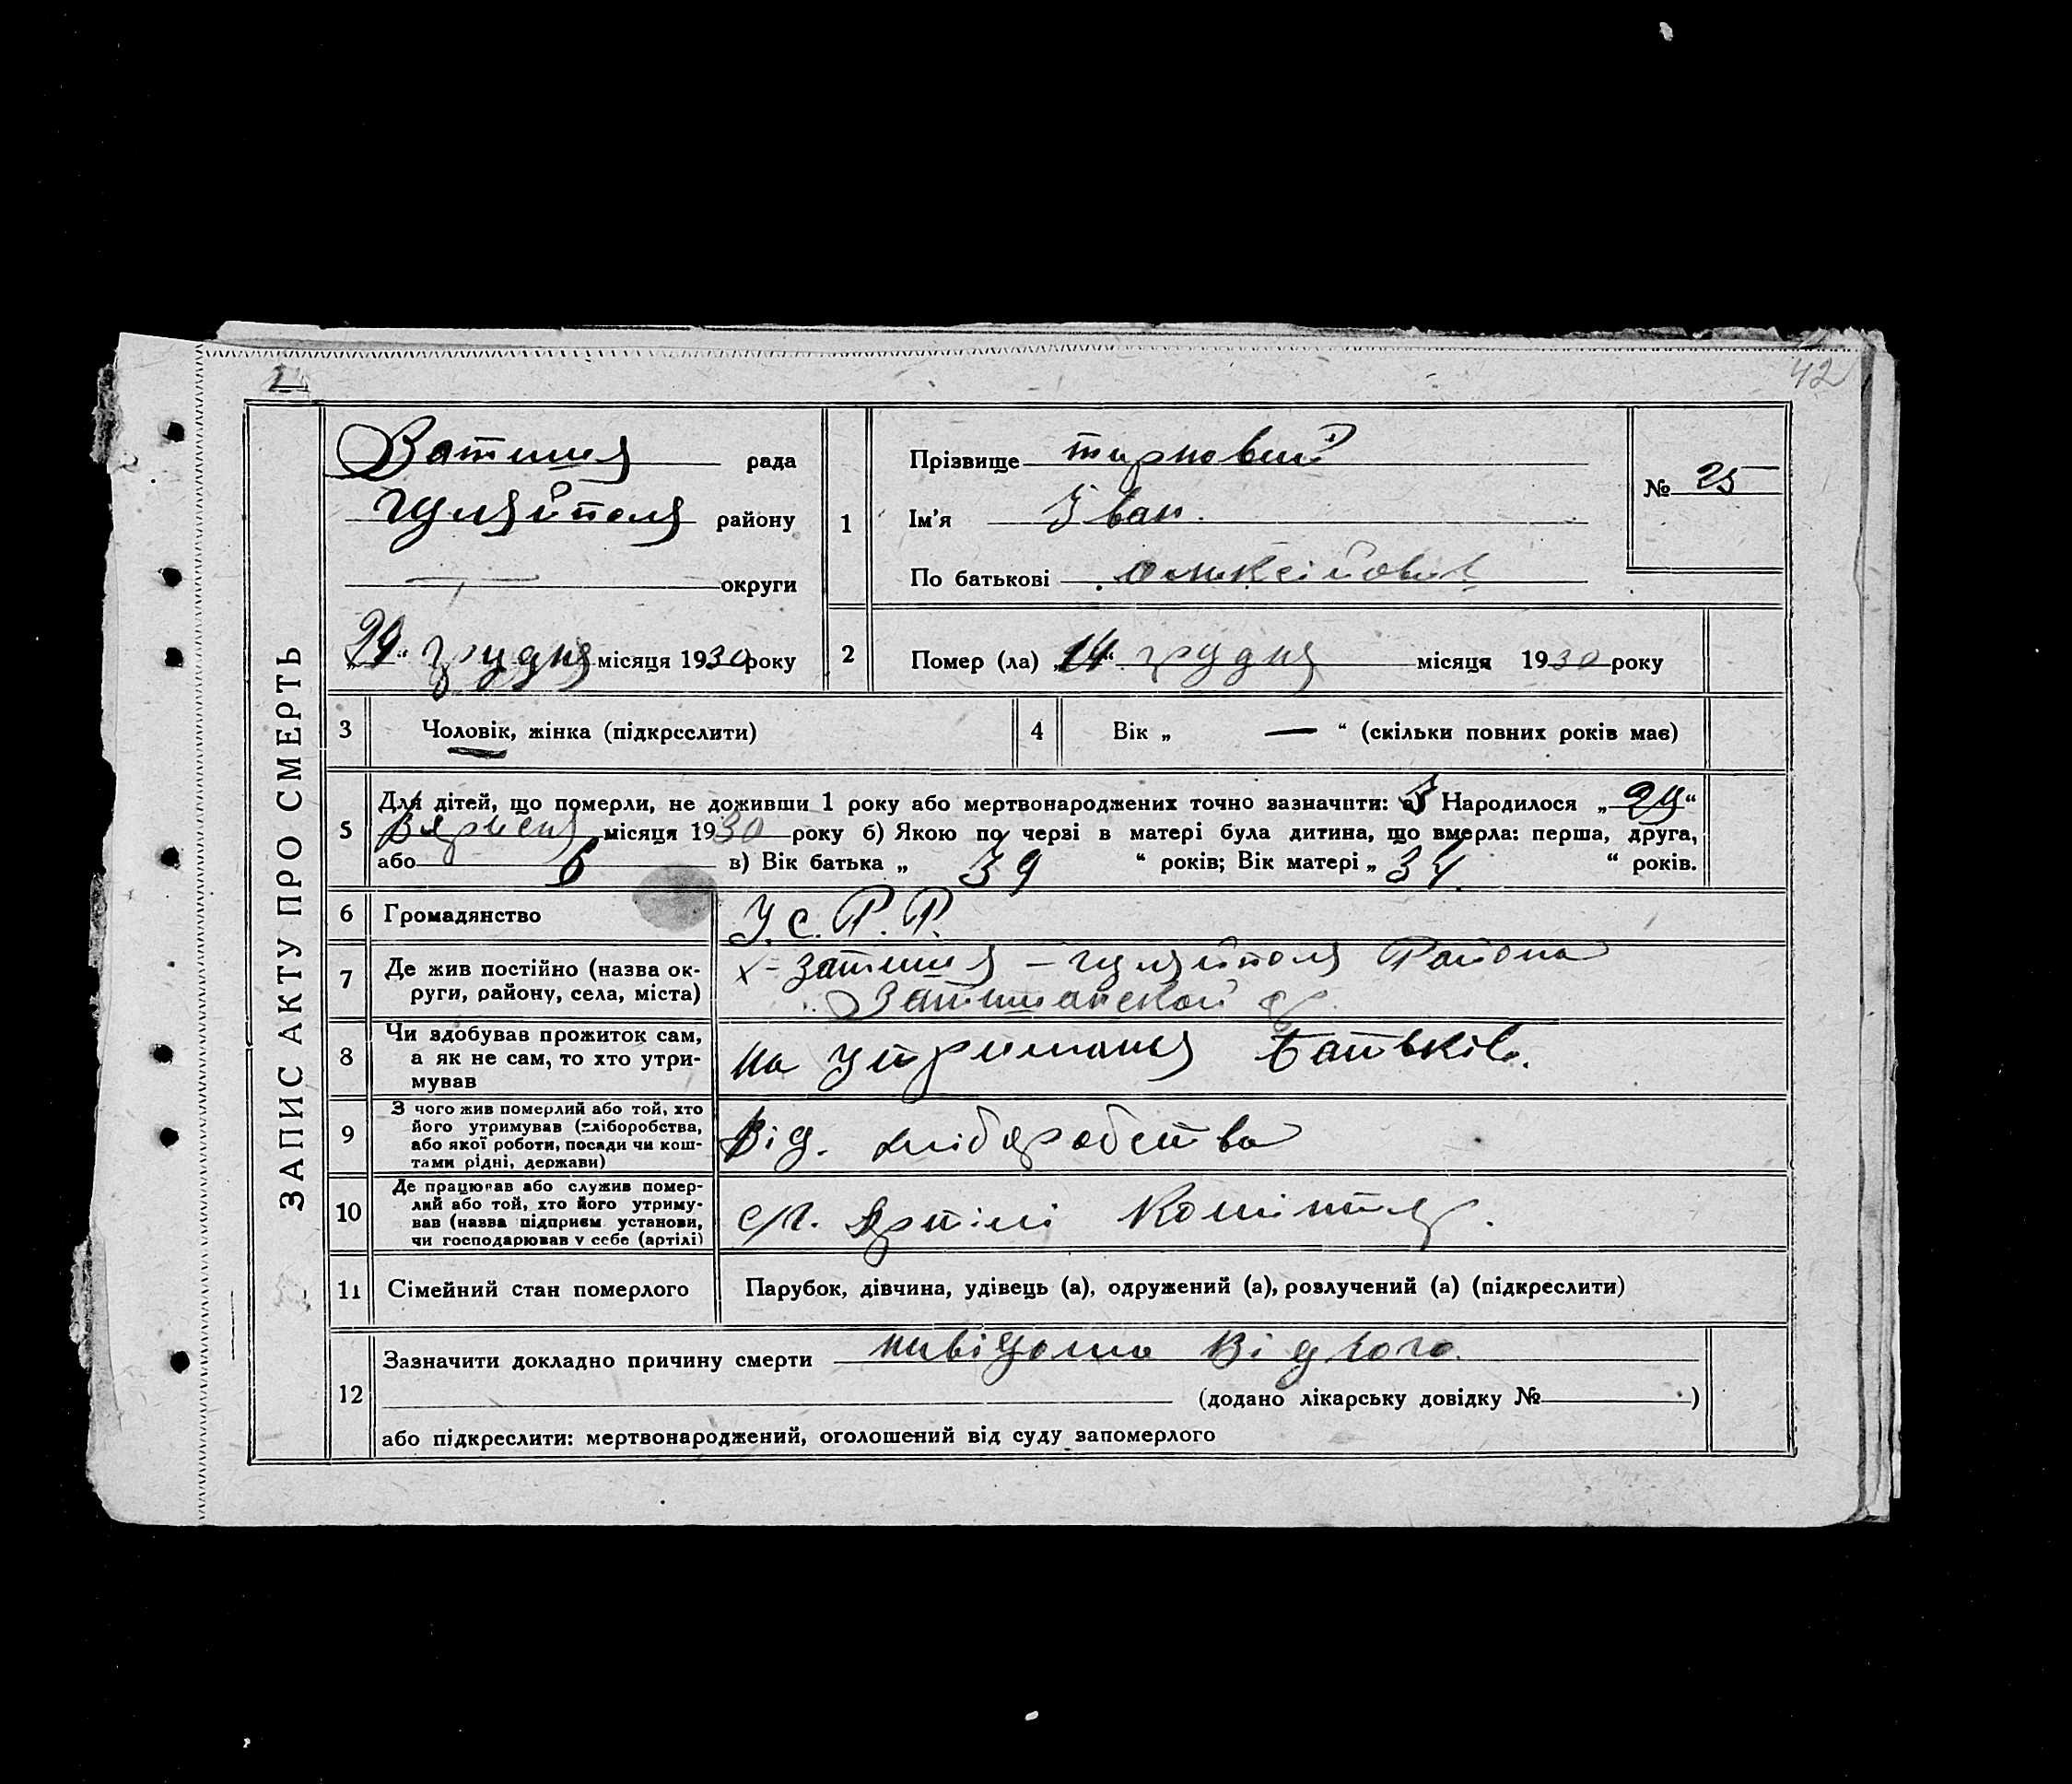 42
ЗАПИС АКТУ ПРО СМЕРТЬ
Затишия рада
Гуляйполя району
округи
"24" грудня місяця 1930 року
1
Прізвище тирновий
Ім'я Іван.
По батькові олексійович
№ 25
2
Помер (ла) "14" грудня місяця 1930 року
3 Чоловік, жінка (підкреслити)
4 Вік „ — “ (скільки повних років має)
5 Для дітей, що померли, не доживши 1 року або мертвонароджених точно зазначити: а) Народилося „ 24 “
Вересня місяця 1930 року б) Якою по черзі в матері була дитина, що вмерла: перша, друга,
або 6 в) Вік батька „ 39 “ років; Вік матері „ 34 “ років.
6 Громадянство У.С.Р.Р.
7 Де жив постійно (назва ок-
руги, району, села, міста)
х-Затишия – Гуляйполя Района
Затишанской
8 Чи здобував прожиток сам,
а як не сам, то хто утри-
мував
на утриманя батьків.
9 З чого жив померлий або той, хто
його утримував (хліборобства,
або якої роботи, посади чи кош-
тами рідні, держави)
Від. хліборобства
10 Де працював або служив помер-
лий або той, хто його утриму-
вав (назва підприєм установи,
чи господарював у себе (артілі)
с/г. Артілі
11 Сімейний стан померлого Парубок, дівчина, удівець (а), одружений (а), розлучений (а) (підкреслити)
12 Зазначити докладно причину смерти невідомо від чого
(додано лікарську довідку № )
або підкреслити: мертвонароджений, оголошений від суду запомерлого